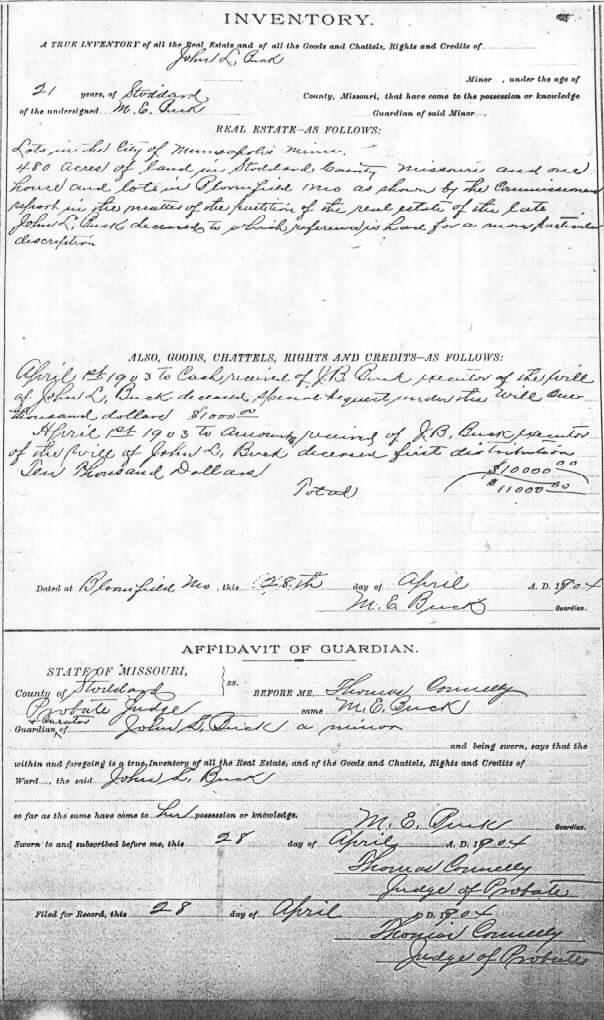 INVENTORY.
A TRUE INVENTORY of all the Real Estate and of all the Goods and Chattels, Rights and Credits of
John L. Buck
Minor, under the age of
21 years, of Stoddard County, Missouri, that have come to the possession or knowledge
of the undersigned M. E. Buck Guardian of said Minor
REAL ESTATE—AS FOLLOWS:
Lots in the City of Minneapolis Minn.
480 acres of land in Stoddard County Missouri and one
house and lots in Bloomfield Mo as shown by the Commissioners
report in the matter of the partition of the real estate of the late
John L. Buck deceased to which reference is had for a more particular
discription
ALSO, GOODS, CHATTELS, RIGHTS AND CREDITS—AS FOLLOWS:
April 1st 1903 to Cash received of J. B. Buck executor of the will
of John L. Buck deceased special bequest under the Will One
thousand dollars $1000.00
April 1st 1903 to amount received of J. B. Buck executor
of the will of John L. Buck deceased first distribution
Ten Thousand Dollars $10000.00
Total $11000.00
Dated at Bloomfield Mo, this 28th day of April A. D. 1904
M. E. Buck Guardian.
AFFIDAVIT OF GUARDIAN.
STATE OF MISSOURI,
County of Stoddard ss. BEFORE ME, Thomas Connelly
Probate Judge came M. E. Buck
& Curator
Guardian of John L. Buck a minor
and being sworn, says that the
within and foregoing is a true Inventory of all the Real Estate, and of the Goods and Chattels, Rights and Credits of
Ward, the said John L. Buck
so far as the same have come to her possession or knowledge.
M. E. Buck Guardian.
Sworn to and subscribed before me, this 28 day of April A. D. 1904
Thomas Connelly
Judge of Probate
Filed for Record, this 28 day of April A. D. 1904
Thomas Connelly
Judge of Probate